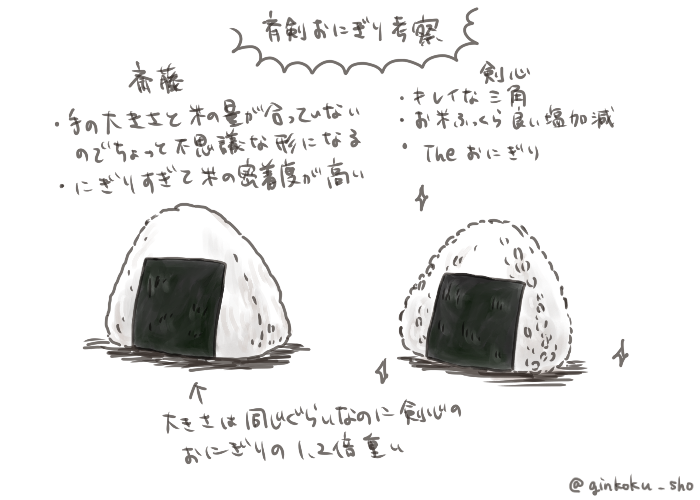 斉剣おにぎり考察
斎藤
・手の大きさと米の量が合っていない
のでちょっと不思議な形になる
・にぎりすぎて米の密着度が高い
剣心
・キレイな三角
・お米ふっくら良い塩加減
・Theおにぎり
↑
大きさは同じぐらいなのに剣心の
おにぎりの1.2倍重い
@ginkoku_sho